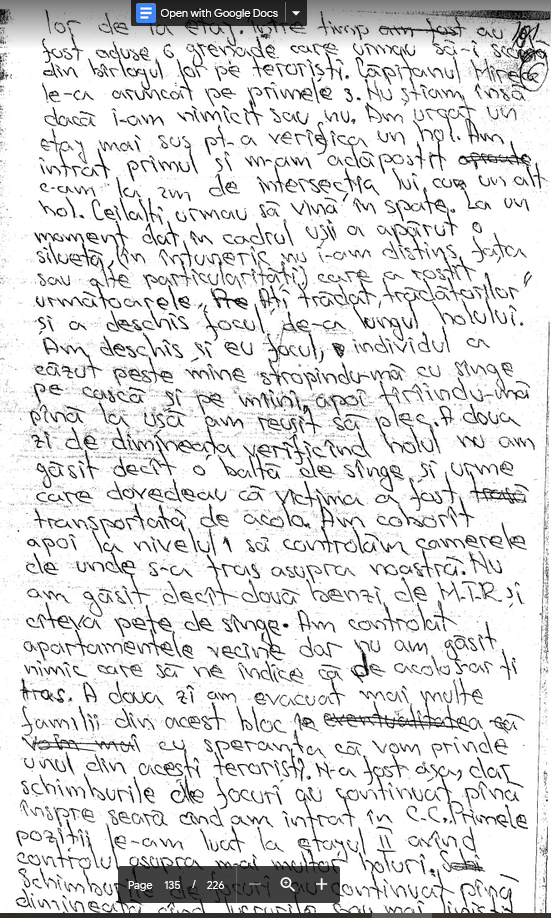 Open with Google Docs
lor de la etaj. Între timp am fost au
fost aduse 6 grenade care urmau să-i scoată
din bîrlogul lor pe teroriști. Căpitanul Mircea
le-a aruncat pe primele 3. Nu știam însă
dacă i-am nimicit sau nu. Am urcat un
etaj mai sus pt. a verifica un hol. Am
intrat primul și m-am adăpostit aproape
c-am la 2m de intersecția lui cu un alt
hol. Ceilalți urmau să vină în spate. La un
moment dat în cadrul ușii a apărut o
siluetă, (în întuneric nu i-am distins fața
sau alte particularități) care a rostit
următoarele, Ați trădat, trădătorilor"
și a deschis focul de-a lungul holului.
Am deschis și eu focul, individul a
căzut peste mine stropindu-mă cu sînge
pe cască și pe mîini, apoi tîrîindu-mă
pînă la ușă am reușit să plec. A doua
zi de dimineața verificînd holul nu am
găsit decît o baltă de sînge și urme
care dovedeau că victima a fost trasă
transportată de acolo. Am coborît
apoi la nivelul 1 să controlăm camerele
de unde s-a tras asupra noastră. Nu
am găsit decît două benzi de M.T.R și
cîteva pete de sînge. Am controlat
apartamentele vecine dar nu am găsit
nimic care să ne indice că de acolo s-ar fi
tras. A doua zi am evacuat mai multe
familii din acest bloc în eventualitatea că
vom mai cu speranța că vom prinde
unul din acești teroriști. N-a fost așa, dar
schimburile de focuri au continuat pînă
înspre seară cînd am intrat în C.C. Primele
poziții le-am luat la etajul II avînd
controlul asupra m-ai multor holuri.
Schimburile de focuri au continuat pînă
dimineața cînd lucrurile s-au mai liniștit
Page 135 / 226